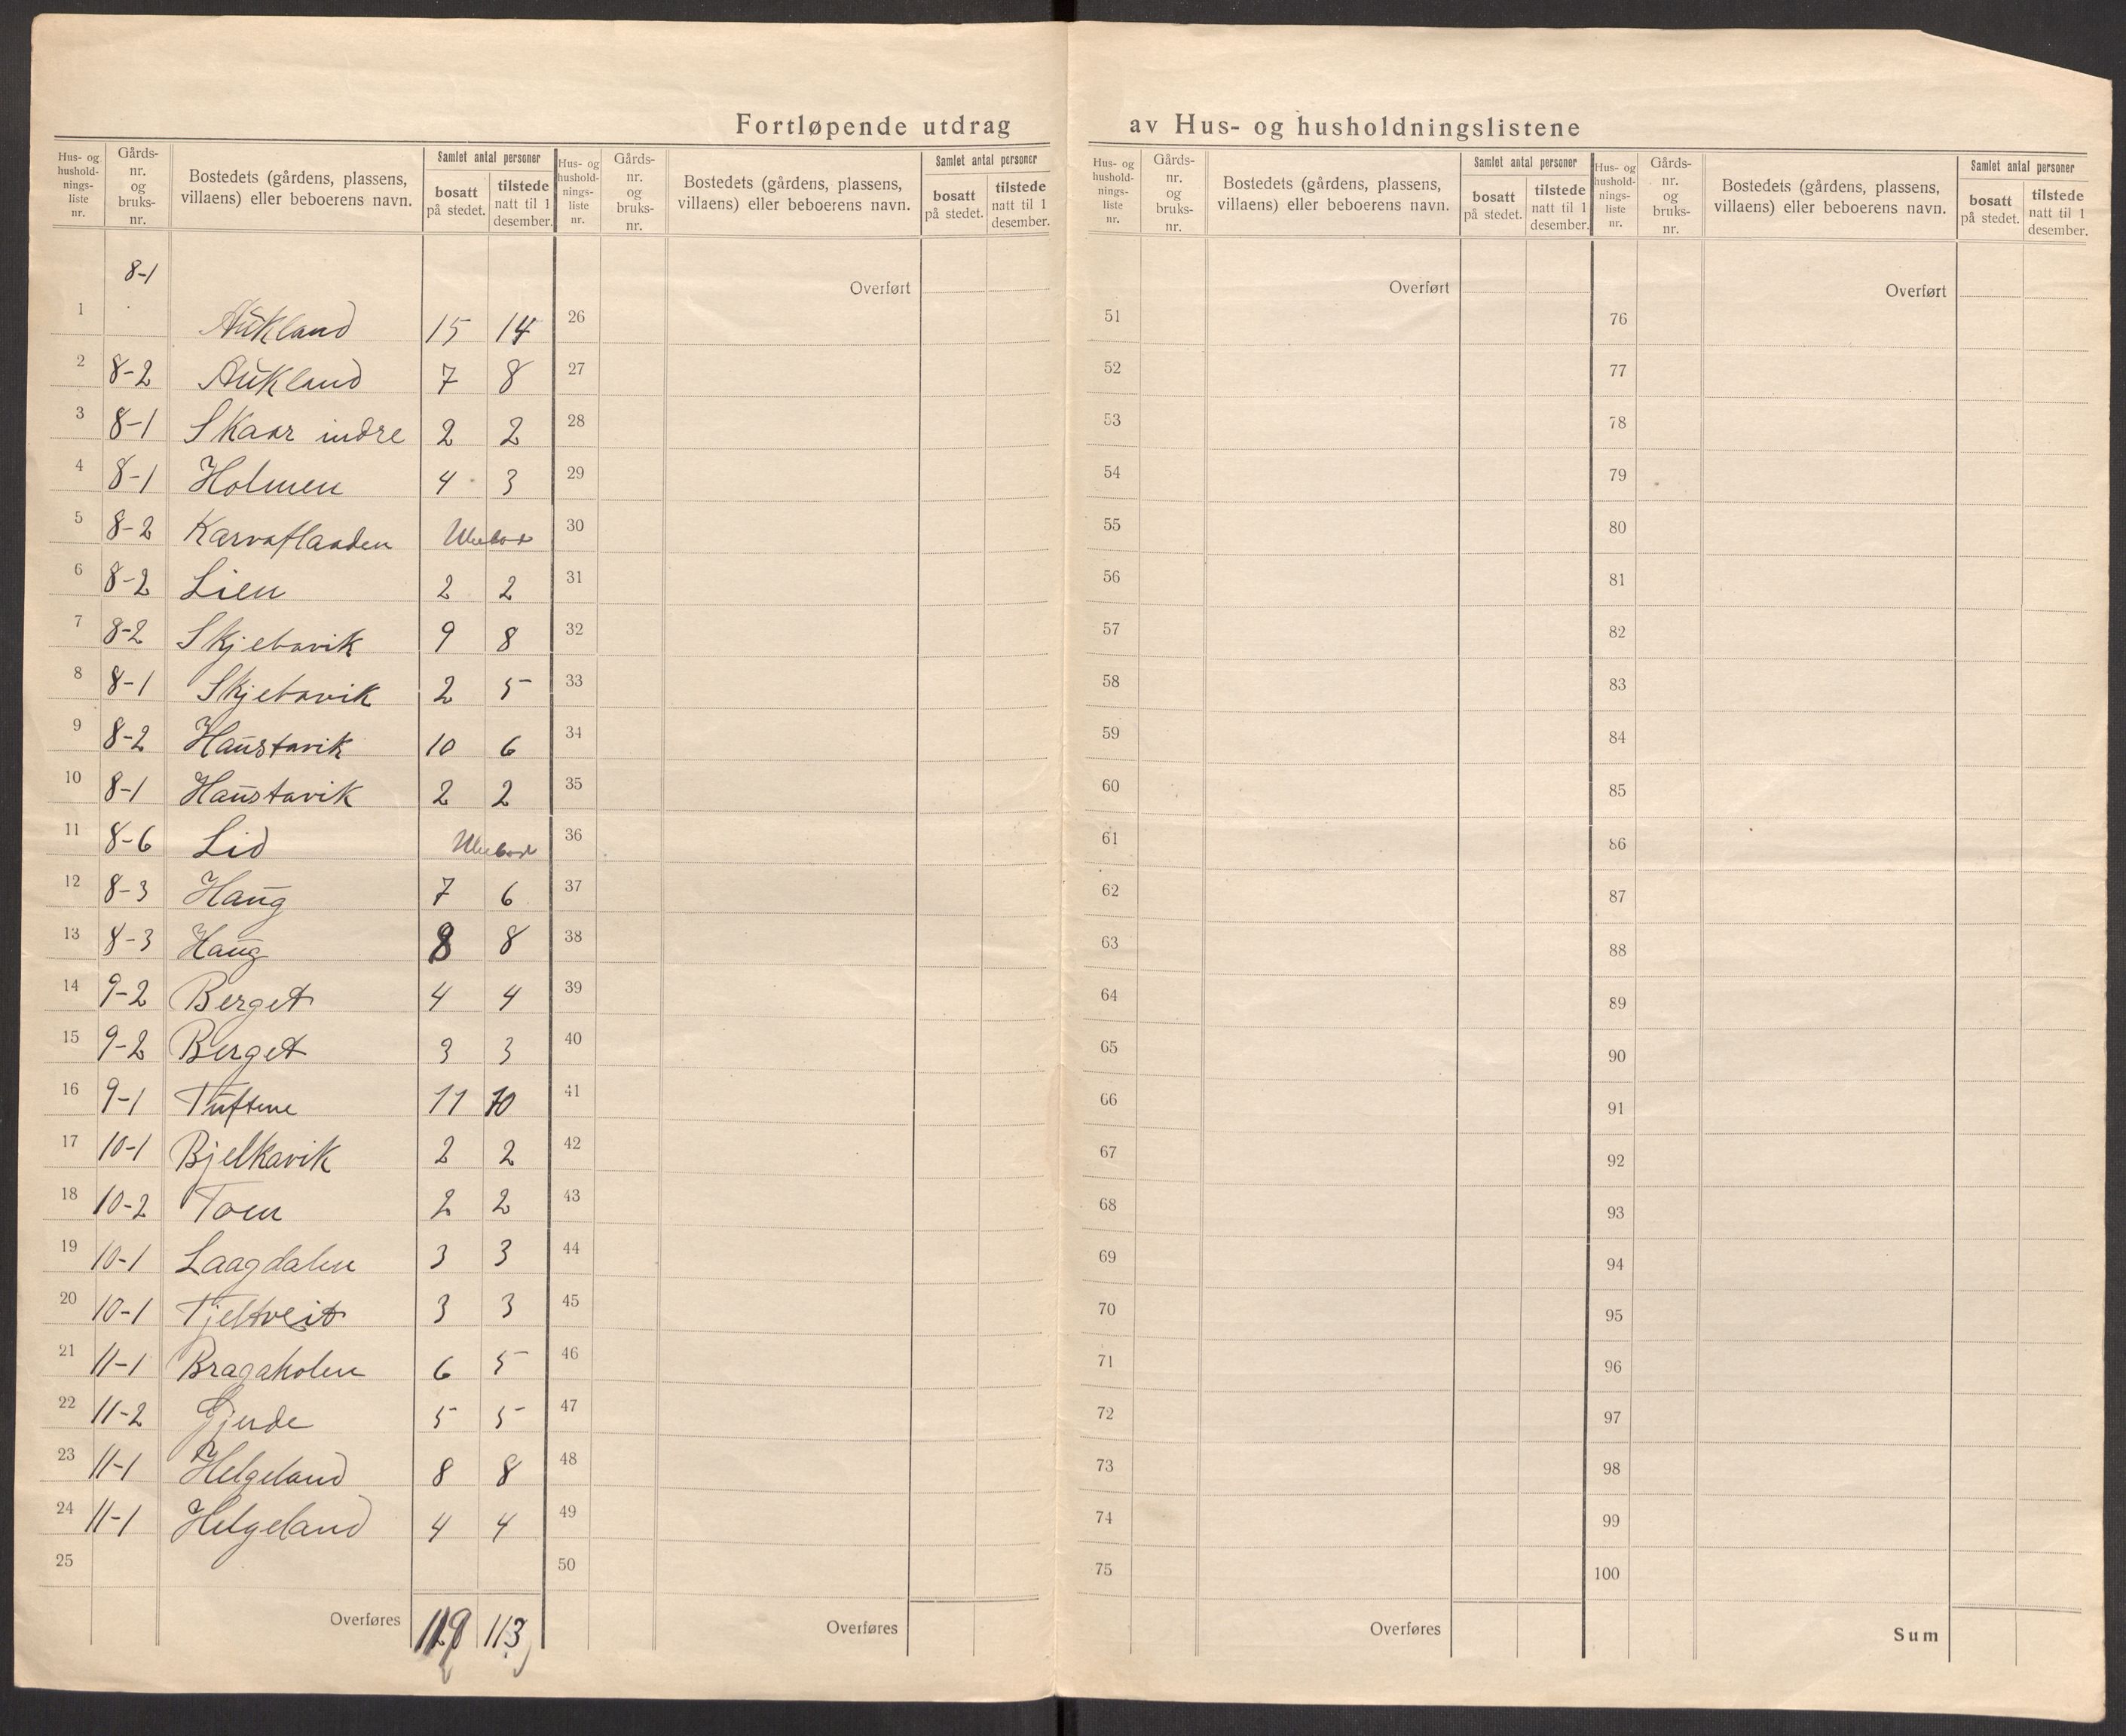 Fortløpende utdrag av Hus- og husholdningslistene
Hus- og
hushold-
nings-
liste
nr.
Gårds-
nr.
og
bruks-
nr.
Bostedets (gårdens, plassens,
villaens) eller beboerens navn.
Samlet antal personer
bosatt
på stedet.
tilstede
natt til 1
desember.
Hus- og
hushold-
nings-
liste
nr.
Gårds-
nr.
og
bruks-
nr.
Bostedets (gårdens, plassens,
villaens) eller beboerens navn.
Samlet antal personer
bosatt
på stedet.
tilstede
natt til 1
desember.
Hus- og
hushold-
nings-
liste
nr.
Gårds-
nr.
og
bruks-
nr.
Bostedets (gårdens, plassens,
villaens) eller beboerens navn.
Samlet antal personer
bosatt
på stedet.
tilstede
natt til 1
desember.
Hus- og
hushold-
nings-
liste
nr.
Gårds-
nr.
og
bruks-
nr.
Bostedets (gårdens, plassens,
villaens) eller beboerens navn.
Samlet antal personer
bosatt
på stedet.
tilstede
natt til 1
desember.
8-1
1 Aukland 15 14
2 8-2 Aukland 7 8
3 8-1 Skaar indre 2 2
4 8-1 Holmen 4 3
5 8-2 Karvaflaaden Ubebod
6 8-2 Lien 2 2
7 8-2 Skjebavik 9 8
8 8-1 Skjebavik 2 5
9 8-2 Haustavik 10 6
10 8-1 Haustavik 2 2
11 8-6 Lid Ubebod
12 8-3 Haug 7 6
13 8-3 Haug 8 8
14 9-2 Berget 4 4
15 9-2 Berget 3 3
16 9-1 Tuftene 11 10
17 10-1 Bjelkavik 2 2
18 10-2 Toen 2 2
19 10-1 Laagdalen 3 3
20 10-1 Tjeltveit 3 3
21 11-1 Bragakolen 6 5
22 11-2 Gjerde 5 5
23 11-1 Helgeland 8 8
24 11-1 Helgeland 4 4
25
Overføres 119 113
Overført
26
27
28
29
30
31
32
33
34
35
36
37
38
39
40
41
42
43
44
45
46
47
48
49
50
Overføres
Overført
51
52
53
54
55
56
57
58
59
60
61
62
63
64
65
66
67
68
69
70
71
72
73
74
75
Overføres
Overført
76
77
78
79
80
81
82
83
84
85
86
87
88
89
90
91
92
93
94
95
96
97
98
99
100
Sum